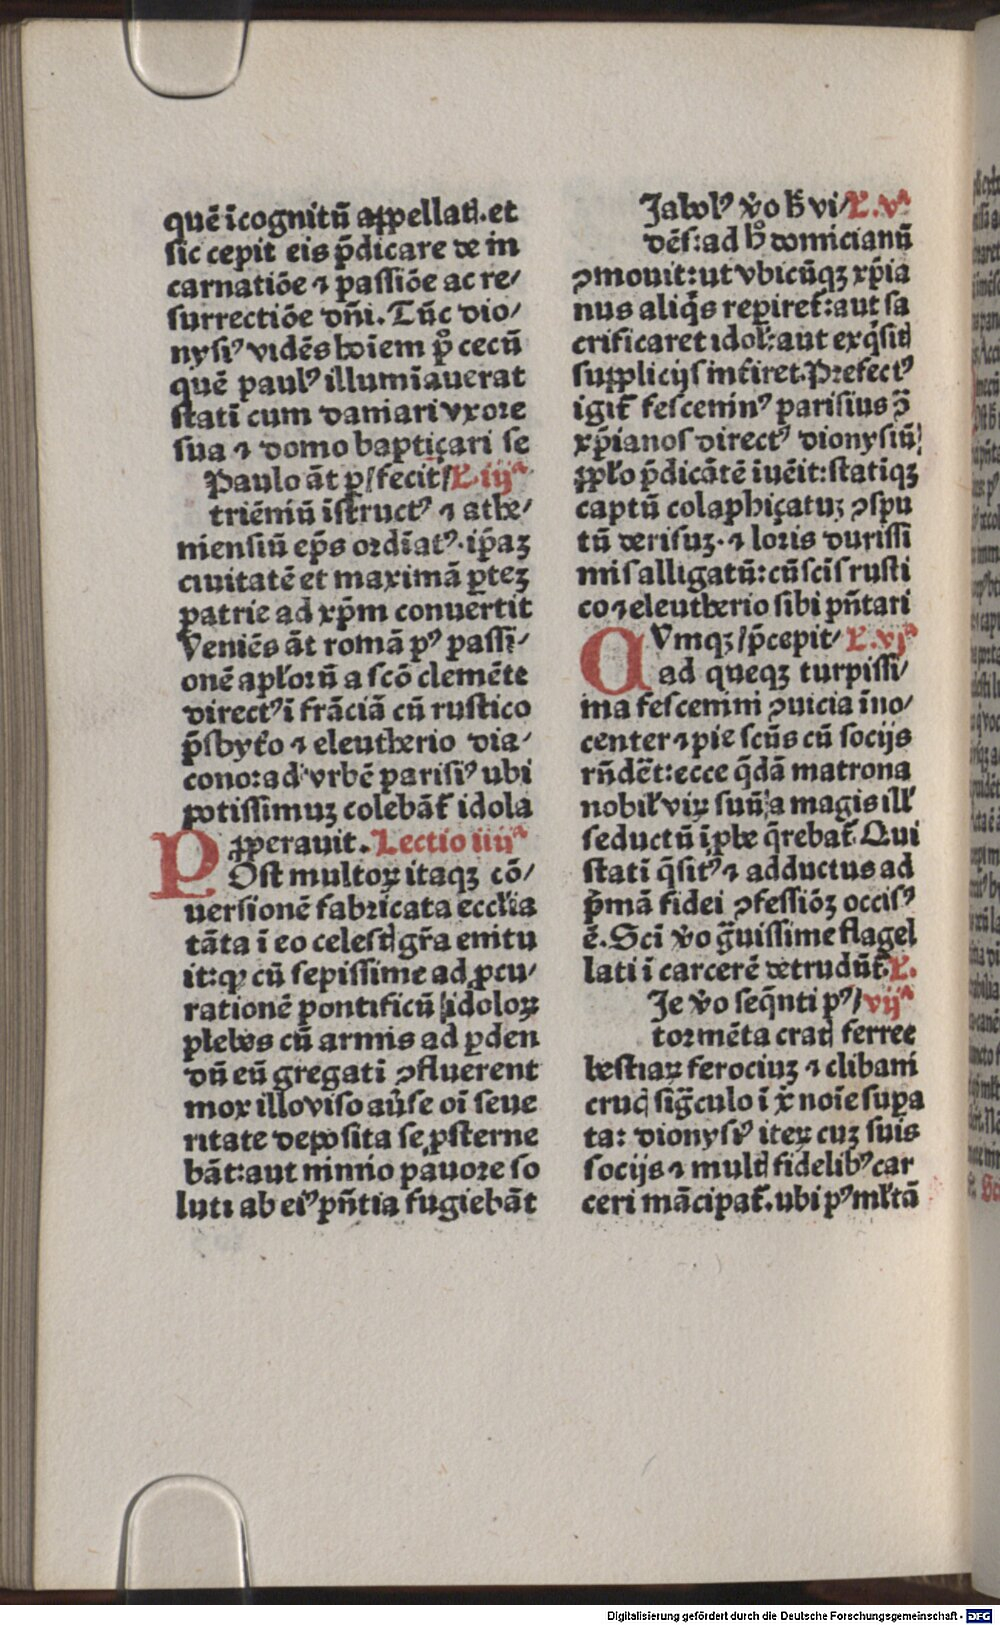 quē īcognitū appellatꝭ. et
sic cepit eis p̄dicare de in
carnatiōe ⁊ passiōe ac re/
surrectiōe dñi. Tūc dio/
nysiꝰ vidēs hoīem p̊ cecū
quē paulꝰ illumīauerat
statī cum damari vxore
sua ⁊ domo baptiçari se
Paulo āt p̱/ fecit/ L. iijª
triēniū īstructꝰ ⁊ athe/
niensiū ep̄s ordīatꝰ. ip̄aꝫ
ciuitatē et maximā ꝑteꝫ
patrie ad xp̄m conuertit
Veniēs āt romā pꝰ passi/
onē apłorū a scō clemēte
directꝰ ī frāciā cū rustico
p̄sbyto ⁊ eleutherio dia/
cono: ad vrbē parisiꝰ ubi
potissimuꝫ colebāt̄ idola
ꝓperauit. Lectio iiiiª
POst multoꝝ itaqꝫ cō/
uersionē fabricata ecclīa
tāta ī eo celestꝭ gr̄a enitu
it: ꝙ cū sepissime ad ꝓcu/
rationē pontificū idoloꝝ
plebes cū armis ad ꝑden
dū eū gregatī ꝯfluerent
mox illo viso aūse oī seue
ritate deposita se ꝓsterne
bāt: aut nimio pauore so
luti ab eiꝰ pn̄tia fugiebāt
Iabolꝰ v̊o h̄ vi/ L. vª
dēs: ad h̊ domicianū
ꝯmouit: ut vbicūqꝫ xp̄ia
nus aliq̄s reperiret̄: aut sa
crificaret idoł: aut exq̄sitꝭ
supplicijs int̄iret. Prefectꝰ
igit̄ fescenninꝰ parisius ꝯ̄
xp̄ianos directꝰ dionysiū
ꝓpło p̄dicātē iuēit: statīqꝫ
captū colaphiçatuꝫ ꝯspu
tū derisuꝫ. ⁊ loris durissi
mis alligatū: cū scīs rusti
co ⁊ eleutherio sibi pn̄tari
CVmqꝫ/ p̄cepit/ L. vjª
ad queqꝫ turpissi/
ma fescennini ꝯuicia īno/
center ⁊ pie scūs cū socijs
rn̄dēt: ecce q̄dā matrona
nobił viꝝ suū a magis ill'
seductū īpbe q̄rebat̄. Qui
statī q̄sitꝰ ⁊ adductus ad
p̄mā fidei ꝯfessiōꝫ occisꝰ
ē. Scī v̊o g̃uissime flagel
lati ī carcerē detrudūt̄. L.
Ie v̊o seq̄nti pꝰ/ vijª
tormēta cratꝭ ferree
bestiaꝝ ferociuꝫ ⁊ clibani
crucꝭ sig̃culo ī x̄ noīe supa
ta: dionysiꝰ iteꝝ cuꝫ suis
socijs ⁊ multꝭ fidelibꝰ car
ceri mācipat̄. ubi pꝰ młtā
Digitalisierung gefördert durch die Deutsche Forschungsgemeinschaft - DFG